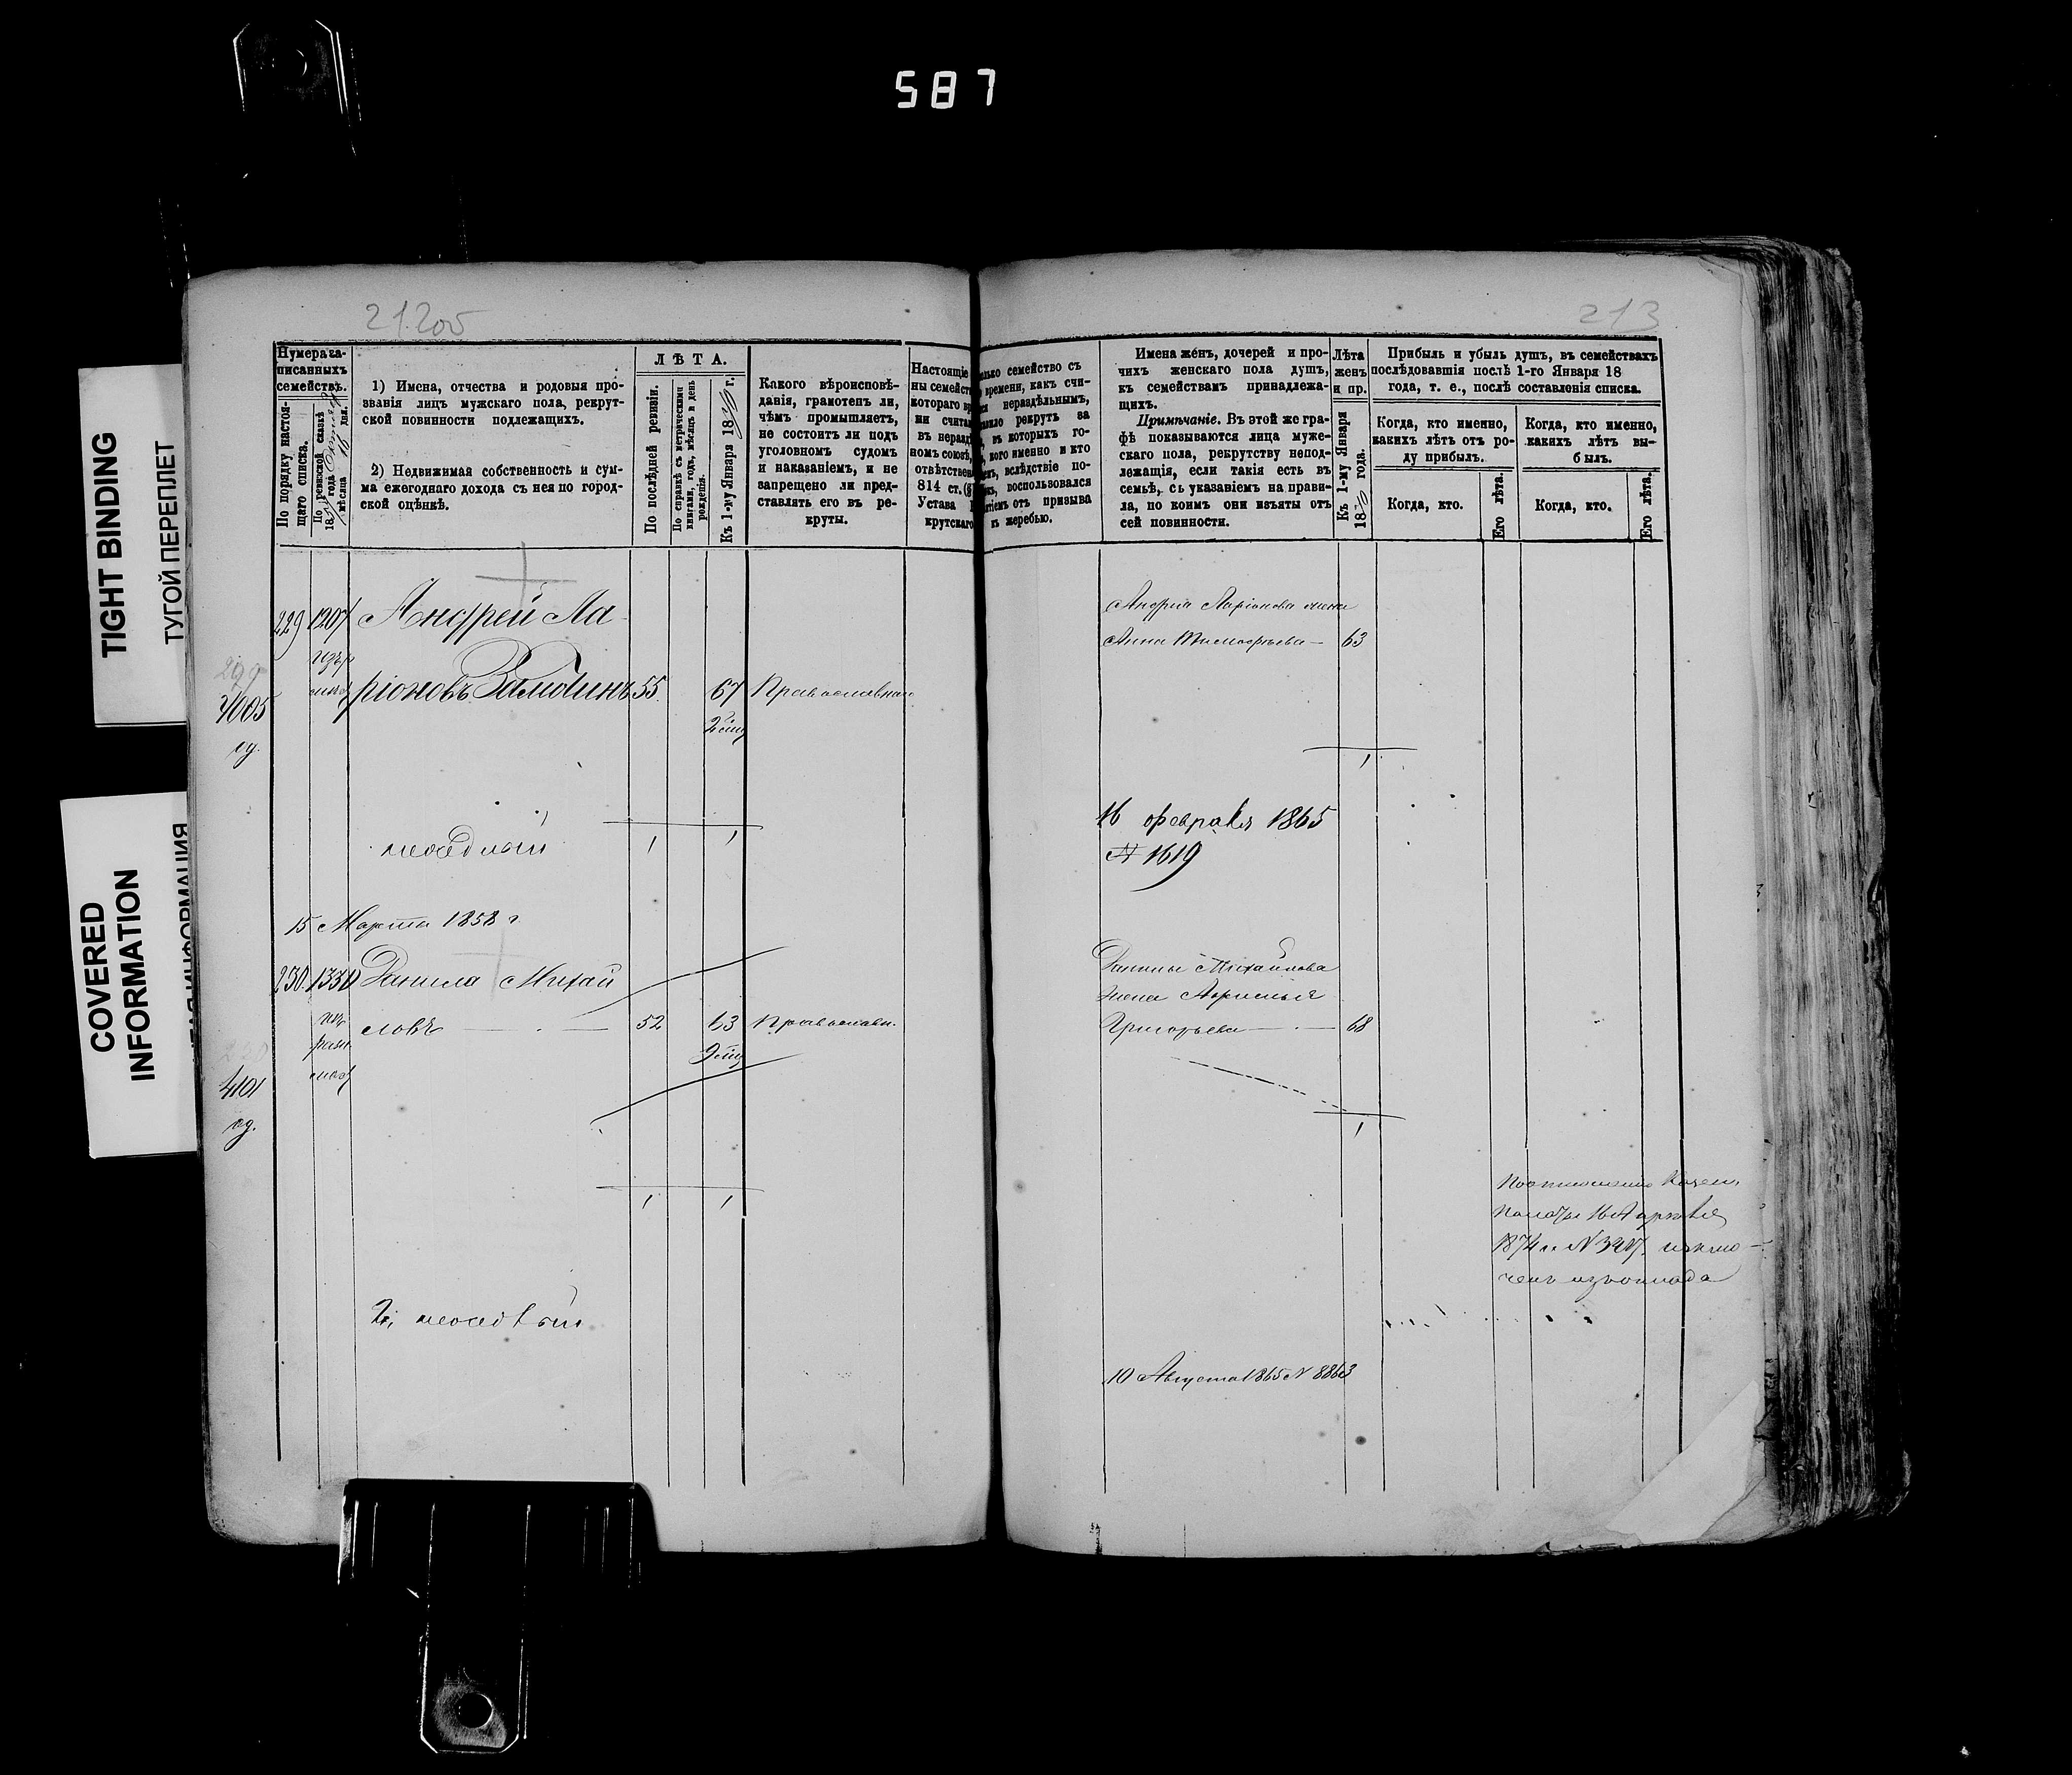 587
TIGHT BINDING
ТУГОЙ ПЕРЕПЛЕТ
COVERED
INFORMATION
212об
213
Нумера га-
писанныхъ
семействъ.
По порядку настоя-
щаго списка.
По ревизской сказкѣ
18 года
мѣсяца дня.
1) Имена, отчества и родовыя про-
званія лицъ мужскаго пола, рекрут-
ской повинности подлежащихъ.
2) Недвижимая собственность и сум-
ма ежегоднаго дохода съ нея по город-
ской оцѣнкѣ.
ЛѢТА.
По послѣдней ревизіи.
По справкѣ съ метрическими
книгами, годъ, мѣсяцъ и день
рожденія.
Къ 1-му Января 18 г.
Какого вѣроисповѣ-
данія, грамотенъ ли,
чѣмъ промышляетъ,
не состоитъ ли подъ
уголовнымъ судомъ
и наказаніемъ, и не
запрещено ли пред-
ставлять его въ ре-
круты.
Настоящіе
ны семейст
котораго вр
ни считал
въ неразд
номъ союзѣ,
отвѣтствен
814 ст.
Устава
крутскаго
олько семейство съ
времени, какъ счи-
нераздѣльнымъ,
рекрутъ за
въ которыхъ го-
кого именно и кто
вслѣдствіе по-
воспользовался
тіемъ отъ призыва
къ жеребью.
Имена жёнъ, дочерей и про-
чихъ женскаго пола душъ,
къ семействамъ принадлежа-
щихъ.
Примѣчаніе. Въ этой же гра-
фѣ показываются лица муже-
скаго пола, рекрутству непод-
лежащія, если такія есть въ
семьѣ, съ указаніемъ на прави-
ла, по коимъ они изъяты отъ
сей повинности.
Лѣта
женъ
и пр.
Къ 1-му Января
18 года.
Прибыль и убыль душъ, въ семействахъ
послѣдовавшія послѣ 1-го Января 18
года, т. е., послѣ составленія списка.
Когда, кто именно,
какихъ лѣтъ отъ ро-
ду прибылъ.
Когда, кто именно,
какихъ лѣтъ вы-
былъ.
Когда, кто.
Его лѣта.
Когда, кто.
Его лѣта.
229 1207 Андрей Ла
ріоновъ 55 67 Православнаго
4005
од.
1 1
Андрея Ларіонова жена
Анна Тимофѣева — 63
1
16 февраля 1865
№ 1619
15 Марта 1858 г
230 1330 Данила Михай
ловъ — 52 63 Православн.
4101
од.
1 1
Данилы Михайлова
жена
Григорьева — 68
1
Казен.
Палаты 16 Апрѣля
1874 г. № исклю-
ченъ изъ оклада
10 Августа 1865 № 8863